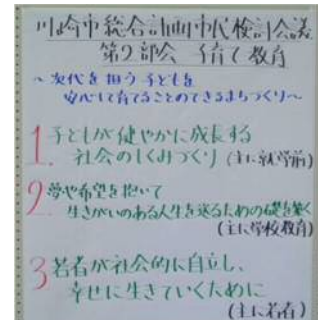 川崎市総合計画市民検討会議
第2部会 子育て教育
～次代を担う子どもを
安心して育てることのできるまちづくり～
1. 子どもが健やかに成長する
社会のしくみづくり (主に就学前)
2 夢や希望を抱いて
生きがいのある人生を送るための礎を築く
(主に学校教育)
3 若者が社会的に自立し、
幸せに生きていくために
(主に若者)